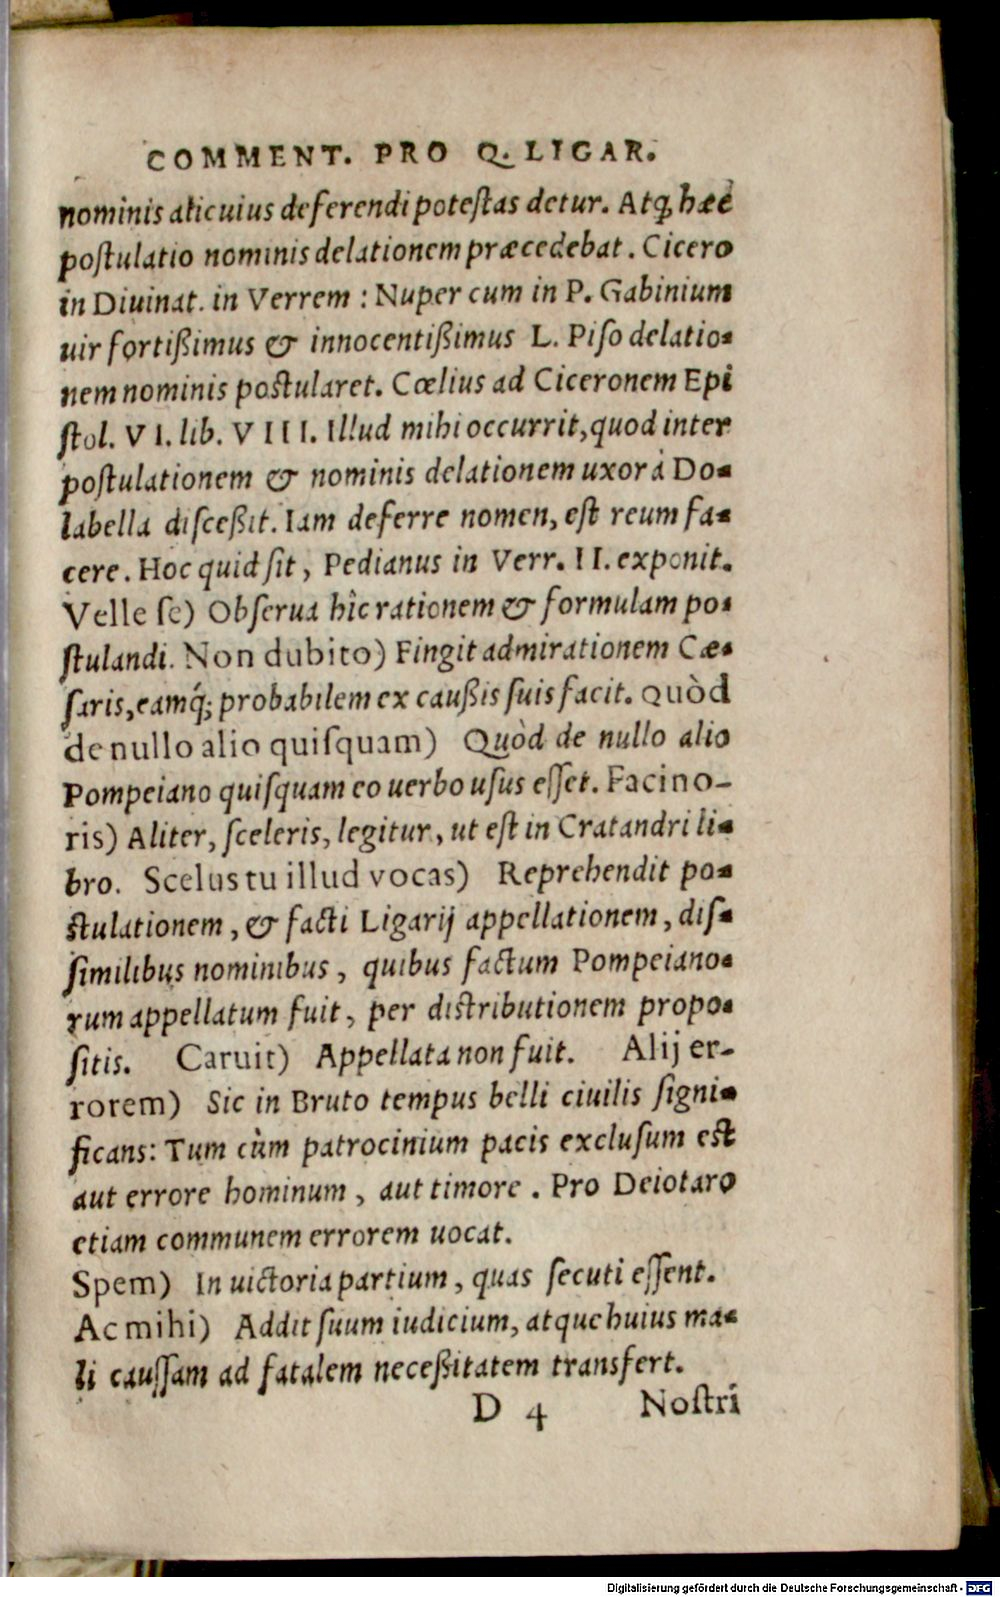 COMMENT. PRO Q. LIGAR.
nominis alicuius deferendi potestas detur. Atq; hæc
postulatio nominis delationem præcedebat. Cicero
in Diuinat. in Verrem : Nuper cum in P. Gabinium
uir fortißimus & innocentißimus L. Piso delatio-
nem nominis postularet. Cœlius ad Ciceronem Epi
stol. VI. lib. VIII. Illud mihi occurrit, quod inter
postulationem & nominis delationem uxor à Do-
labella disceßit. Iam deferre nomen, est reum fa-
cere. Hoc quid sit, Pedianus in Verr. II. exponit.
Velle se) Obserua hîc rationem & formulam po-
stulandi. Non dubito) Fingit admirationem Cæ-
saris, eamq́; probabilem ex caußis suis facit. Quòd
de nullo alio quisquam) Quòd de nullo alio
Pompeiano quisquam eo uerbo usus esset. Facino-
ris) Aliter, sceleris, legitur, ut est in Cratandri li-
bro. Scelus tu illud vocas) Reprehendit po-
stulationem, & facti Ligarij appellationem, dis-
similibus nominibus, quibus factum Pompeiano-
rum appellatum fuit, per distributionem propo-
sitis. Caruit) Appellata non fuit. Alij er-
rorem) Sic in Bruto tempus belli ciuilis signi-
ficans: Tum cùm patrocinium pacis exclusum est
aut errore hominum, aut timore. Pro Deiotaro
etiam communem errorem uocat.
Spem) In uictoria partium, quas secuti essent.
Ac mihi) Addit suum iudicium, atque huius ma-
li caussam ad fatalem neceßitatem transfert.
D 4 Nostri
Digitalisierung gefördert durch die Deutsche Forschungsgemeinschaft - DFG